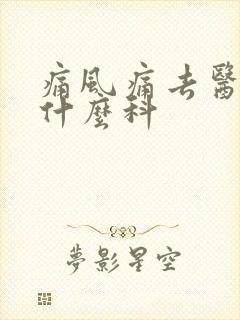 痛风痛去醫
什麼科
夢影星空